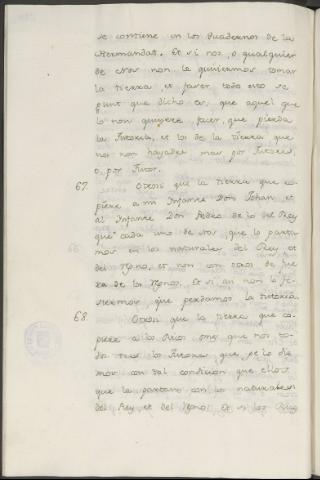 se contiene en los Quadernos de la
Hermandat. Et si nos, o qualquier
de Nos non la quisieremos tomar
la tierra, et facer todo esto se
gunt que dicho es, que aquel que
lo non quisiere facer, que pierda
la Tutoria, et los de la tierra que
nos non hayades mas por Tutores
o, por Tutor.
67. Otrosi que la tierra que co-
piere a mi Infante Don Johan, et
al Infante Don Pedro de lo del Rey
que cada uno de Nos, que lo parta-
mos en los naturales del Rey et
del Regno, et non con otros de fue
ra de los Regnos. Et si asi non lo fi-
sieremos, que perdamos la tutoria.
68. Otrosi que la tierra que co-
piere a los Ricos omes que nos to-
dos tres los Tutores, que ge lo die
mos con tal condicion que ellos
que la partan con los naturales
del Rey, et del Regno. Et si los Ricos